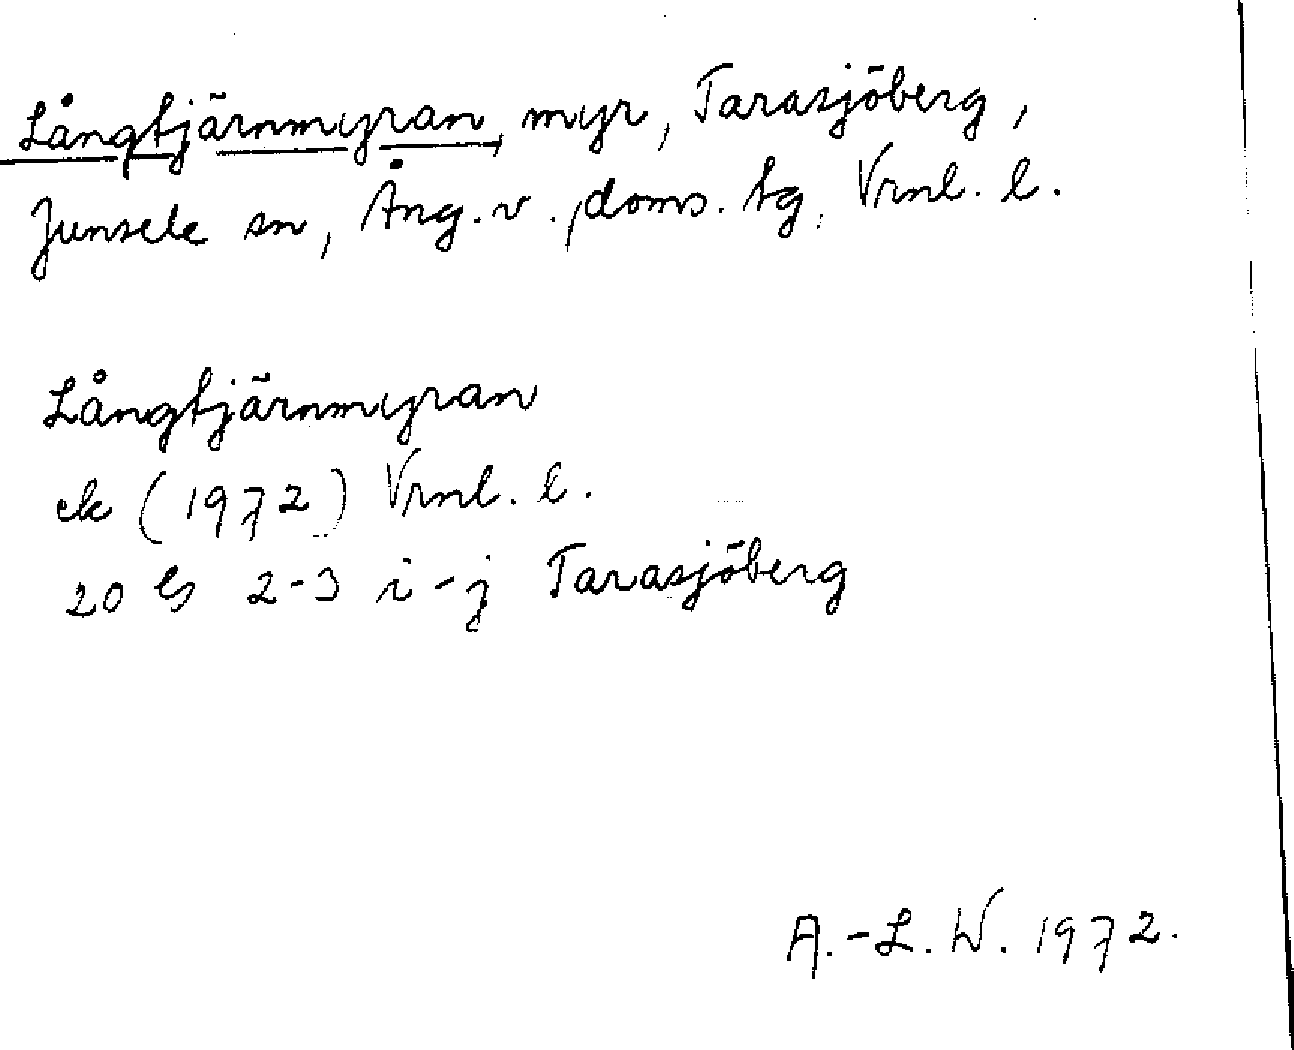 Långtjärnmyran, myr, Tarasjöberg,
Junsele sn, Ång. v., doms. tg, Vrnl. l.
Långtjärnmyran
ek (1972) Vrnl. l.
20 G 2-3 i-j Tarasjöberg
A.-L. W. 1972.